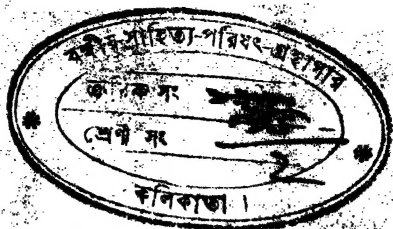 বঙ্গীয়-সাহিত্য-পরিষৎ-গ্রন্থাগার
ক্রমিক সং
শ্রেণী সং
2
কলিকাতা।